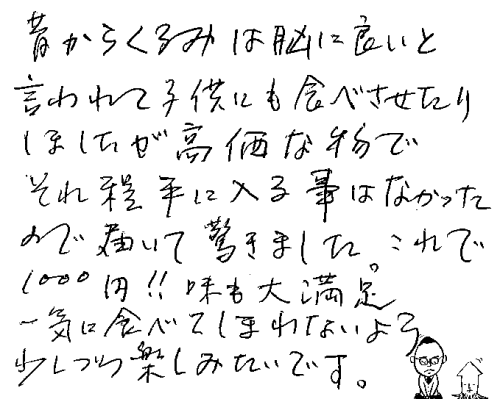 昔からくるみは脳に良いと
言われて子供にも食べさせたり
しましたが高価な物で
それ程手に入る事はなかった
ので届いて驚きました。これで
1000円!!味も大満足
一気に食べてしまわないよう
少しづつ楽しみたいです。